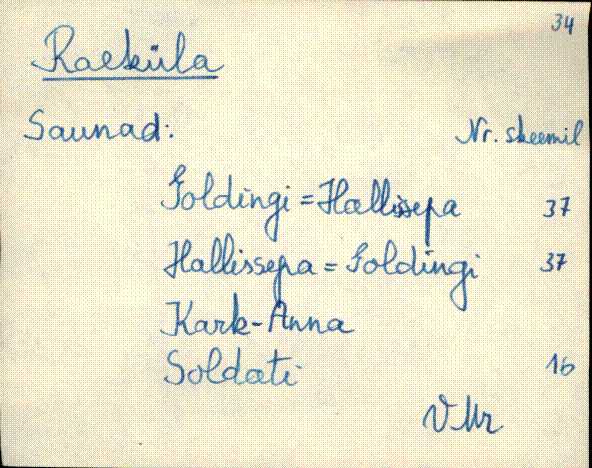 34
Raeküla
Saunad: Nr. skeemil
Goldingi = Hallissepa 37
Hallissepa = Goldingi 37
Kark-Anna
Soldati 16
VMr